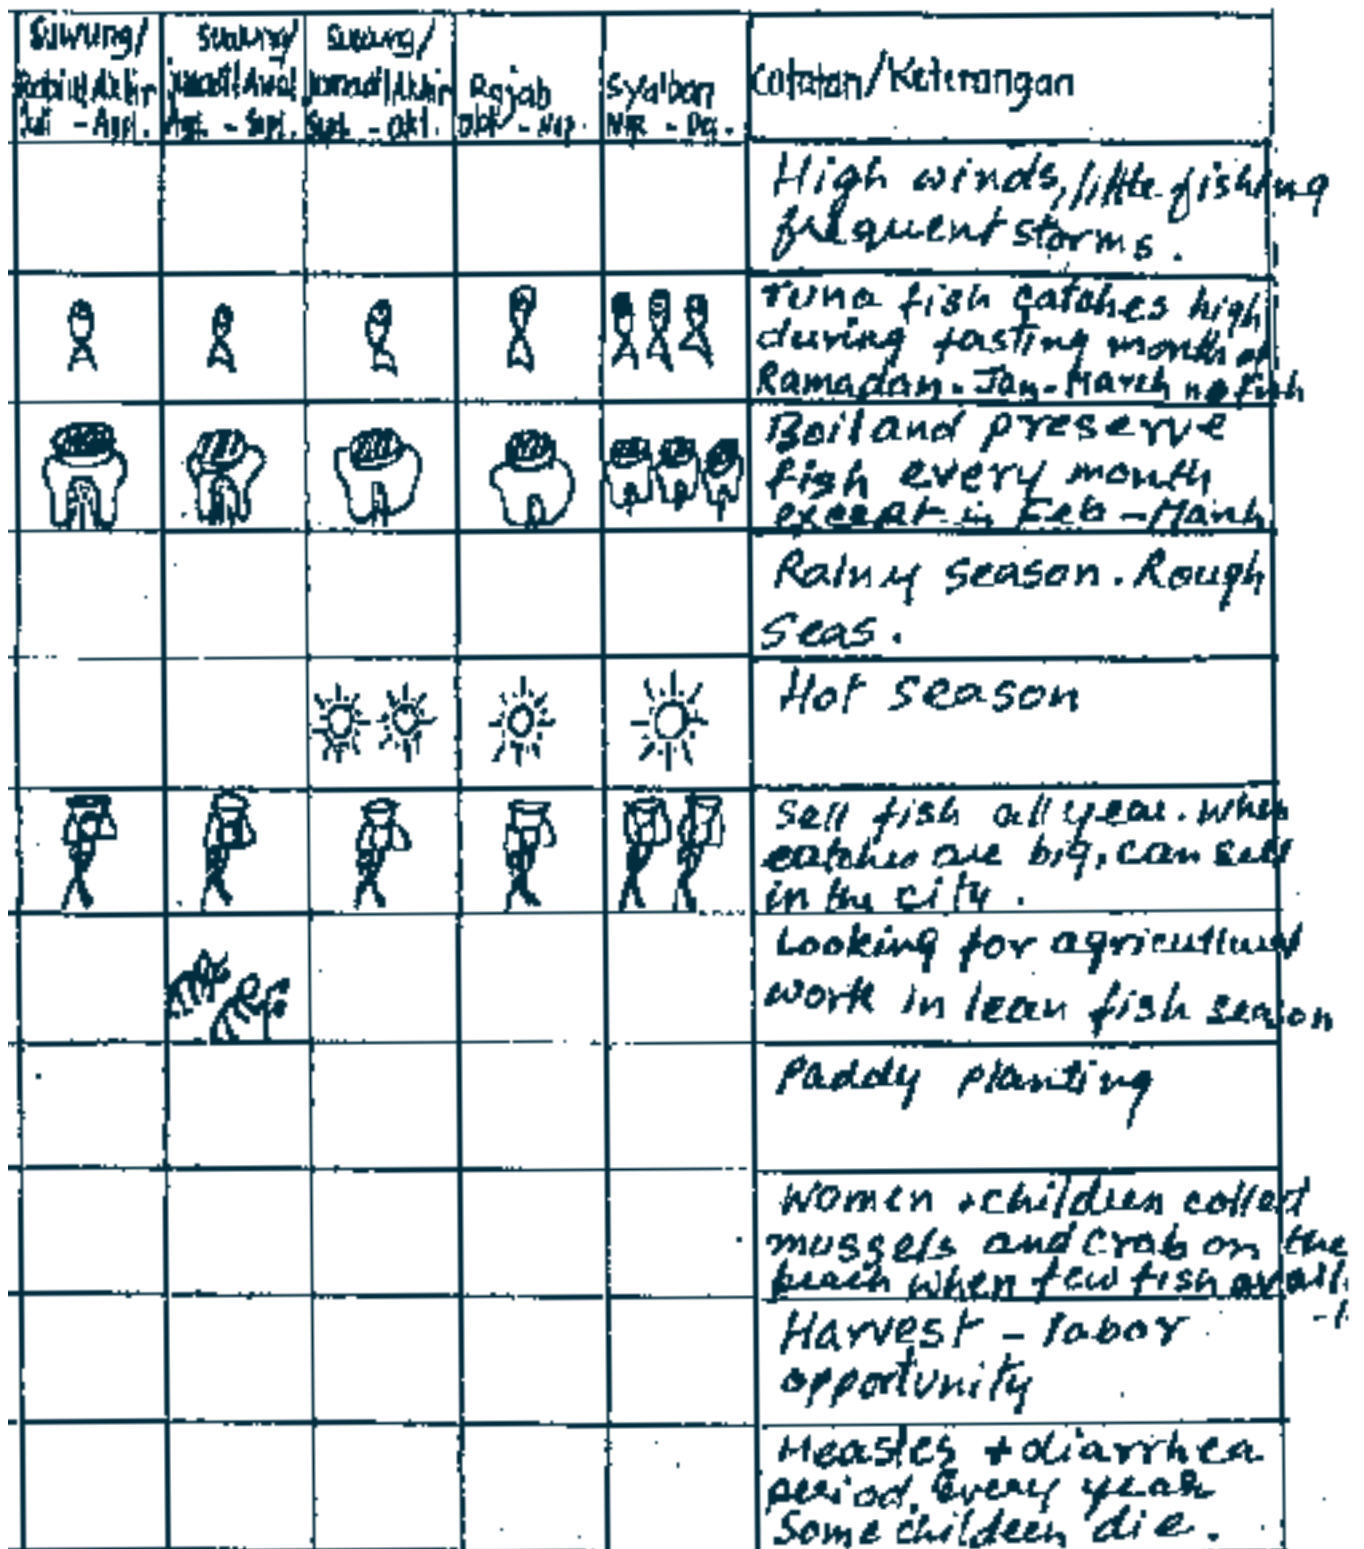 Suwung/
Suwung/
Suwung/
Rabiul Akhir
Jumadil Awal
Jumadil Akhir
Rajab
Sya'ban
Catatan/Keterangan
Juli - Agst.
Agt. - Sept.
Sept. - Okt.
Okt - Nop.
Nop - Des.
High winds, little fishing
frequent storms.
Tuna fish catches high
during fasting month of
Ramadan. Jan-March no fish
Boil and preserve
fish every month
except in Feb - March
Rainy season. Rough
Seas.
Hot season
Sell fish all year. When
catches are big, can sell
in the city.
Looking for agricultural
work in lean fish season
Paddy planting
Women + children collect
mussels and crab on the
beach when few fish avail.
Harvest - labor
opportunity
Measles + diarrhea
period. Every year
Some children die.